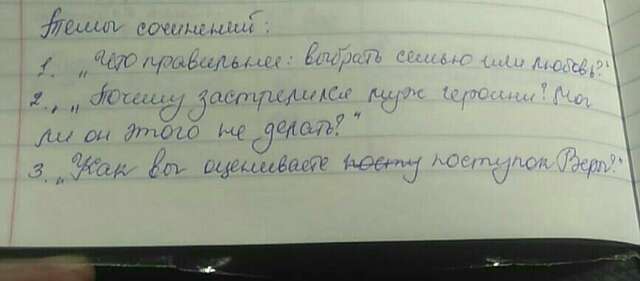 Темы сочинений:
1. „Что правильнее: выбрать семью или любовь?"
2. „Почему застрелился муж героини? Мог
ли он этого не делать?"
3. „Как вы оцениваете посту поступок Веры?"